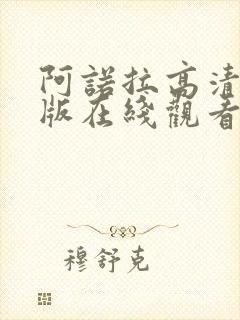 阿諾拉高清
版在綫觀看
穆舒克